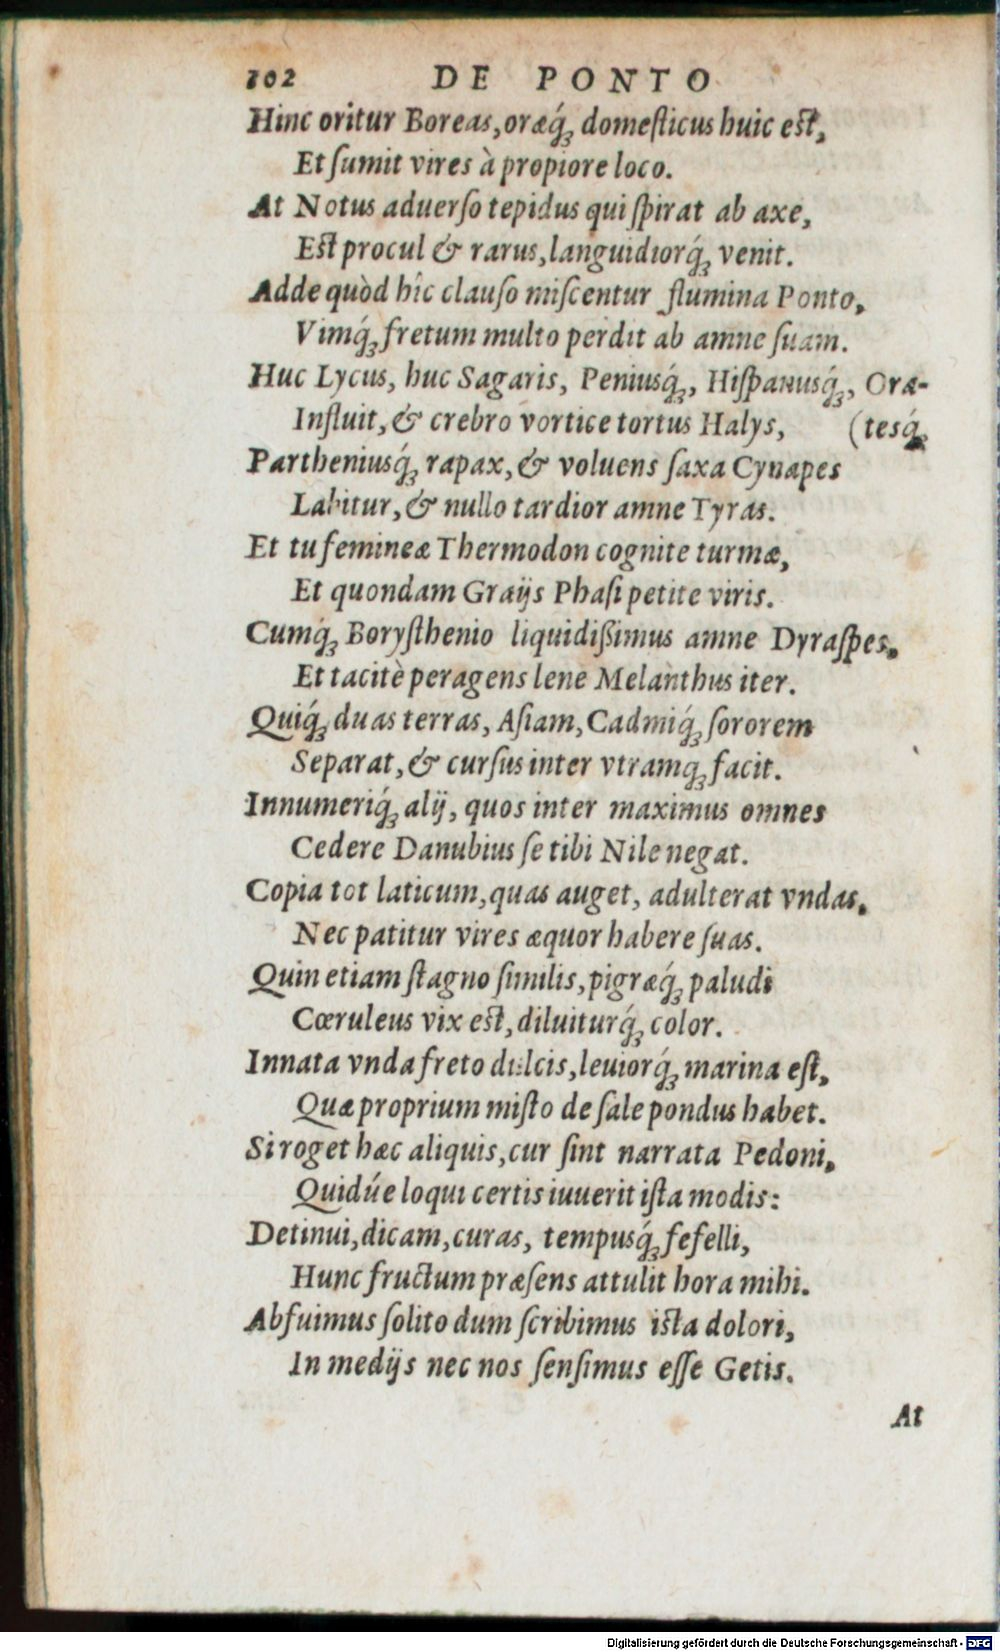 102 DE PONTO
Hinc oritur Boreas, oræq́ꝫ domeſticus huic eſt,
Et ſumit vires à propiore loco.
At Notus aduerſo tepidus qui ſpirat ab axe,
Eſt procul & rarus, languidiorq́ꝫ venit.
Adde quòd hîc clauſo miſcentur flumina Ponto,
Vimq́ꝫ fretum multo perdit ab amne ſuam.
Huc Lycus, huc Sagaris, Peniusq́ꝫ, Hiſpanusq́ꝫ, Oræ-
Influit, & crebro vortice tortus Halys, (tesq́ꝫ
Partheniusq́ꝫ rapax, & voluens ſaxa Cynapes
Labitur, & nullo tardior amne Tyras.
Et tu femineæ Thermodon cognite turmæ,
Et quondam Graijs Phaſi petite viris.
Cumq́ꝫ Boryſthenio liquidißimus amne Dyraſpes,
Et tacitè peragens lene Melanthus iter.
Quiq́ꝫ duas terras, Aſiam, Cadmiq́ꝫ ſororem
Separat, & curſus inter vtramqꝫ facit.
Innumeriq́ꝫ alij, quos inter maximus omnes
Cedere Danubius ſe tibi Nile negat.
Copia tot laticum, quas auget, adulterat vndas,
Nec patitur vires æquor habere ſuas.
Quin etiam ſtagno ſimilis, pigræq́ꝫ paludi
Cœruleus vix eſt, diluiturq́ꝫ color.
Innata vnda freto dulcis, leuiorq́ꝫ marina eſt,
Quæ proprium miſto de ſale pondus habet.
Si roget hæc aliquis, cur ſint narrata Pedoni,
Quidúe loqui certis iuuerit iſta modis:
Detinui, dicam, curas, tempusq́ꝫ fefelli,
Hunc fructum præſens attulit hora mihi.
Abfuimus ſolito dum ſcribimus iſta dolori,
In medijs nec nos ſenſimus eſſe Getis.
At
Digitalisierung gefördert durch die Deutsche Forschungsgemeinschaft - DFG